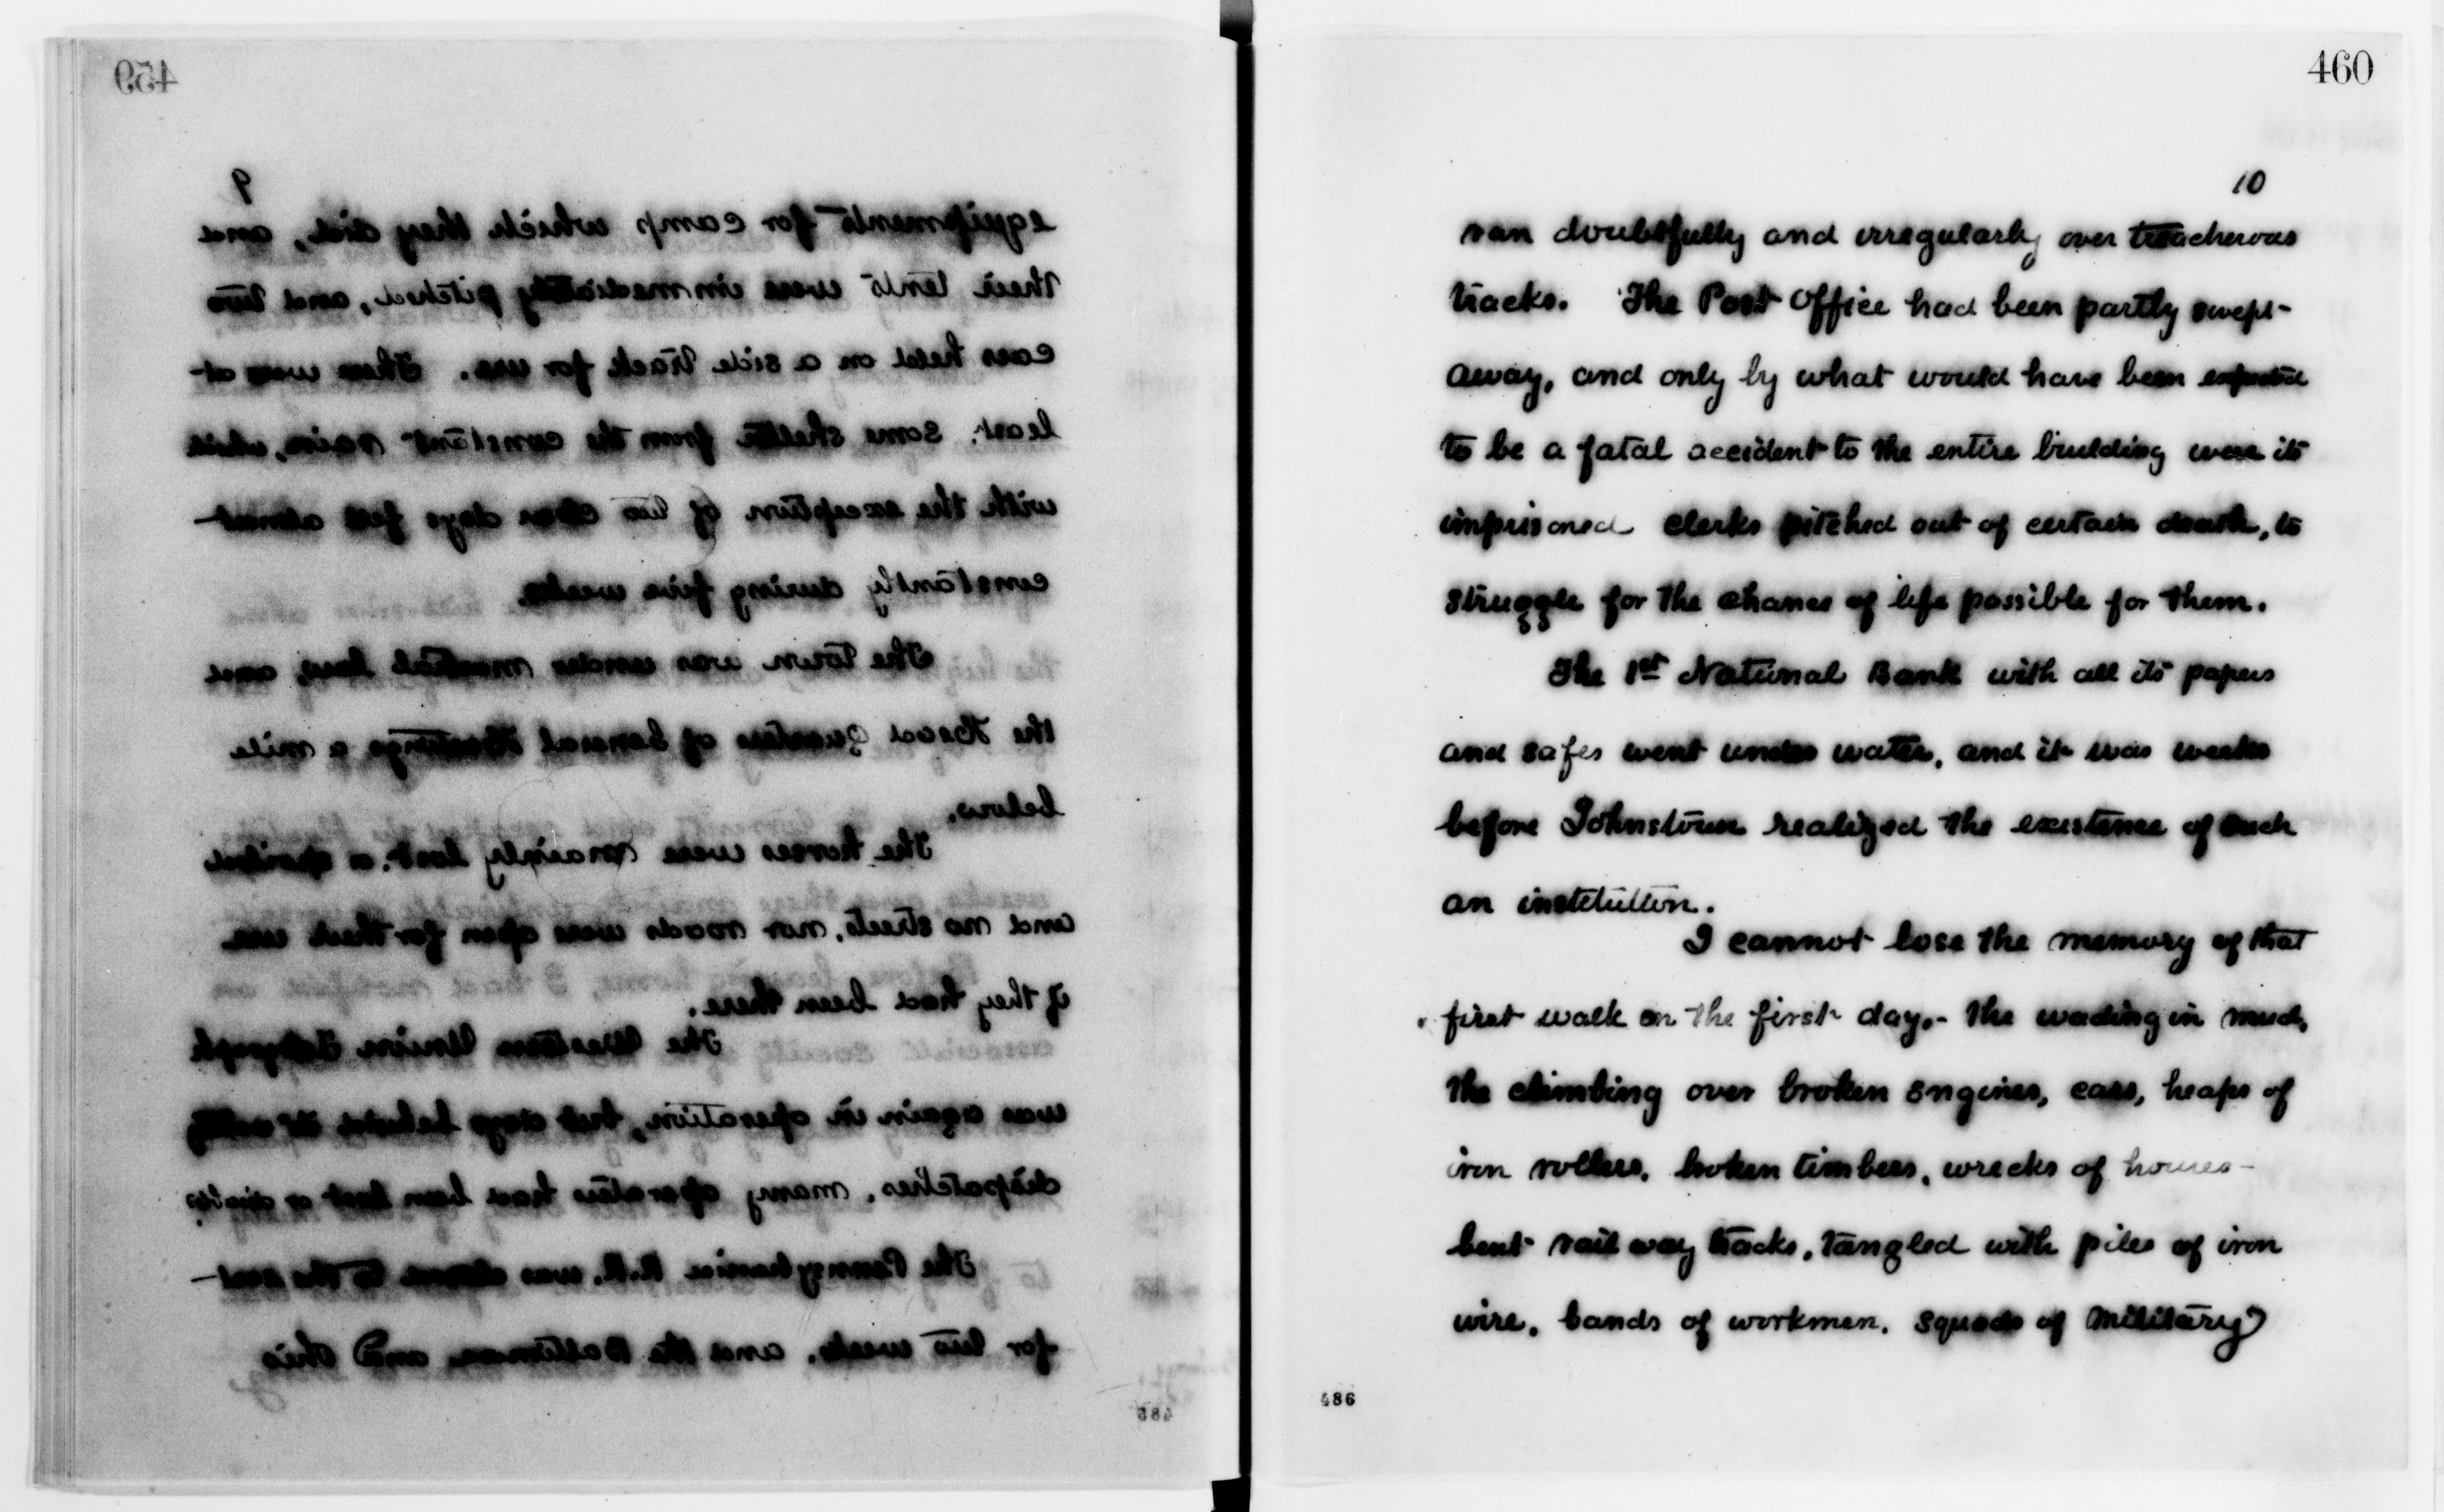 459
9
equipments for camp which they did, and
their tents were immediately pitched, and two
cars held on a side track for use. There was at
least, some shelter from the constant rain, which
with the exception of two clear days fell almost
constantly during five weeks.
The town was under martial law, and
the Head Quarters of General Hastings a mile
below.
The horses were mainly lost,
and no streets, nor roads were open for their use
if they had been there.
The Western Union Telegraph
was again in operation, but days behind its
dispatches, many operators had been lost or
The Pennsylvania R.R. was
for two weeks, and the Baltimore and Ohio
485
460
10
ran doubtfully and irregularly over treacherous
tracks. The Post Office had been partly swept
away, and only by what would have been expected
to be a fatal accident to the entire building were its
imprisoned clerks pitched out of certain death, to
struggle for the chance of life possible for them.
The 1st National Bank with all its papers
and safes went under water, and it was weeks
before Johnstown realized the existence of such
an institution.
I cannot lose the memory of that
first walk on the first day,- the wading in mud,
the climbing over broken engines, cars, heaps of
iron rollers, broken timbers, wrecks of houses-
bent railway tracks, tangled with piles of iron
wire, bands of workmen, squads of military
486